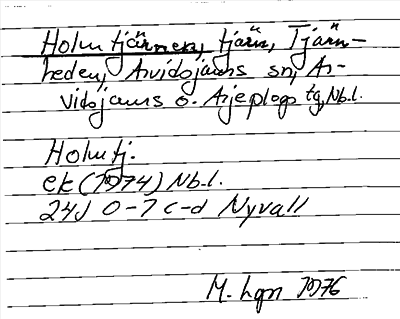 Holmtjärnen, tjärn, Tjärn-
heden, Arvidsjaurs sn, Ar-
vidsjaurs o. Arjeplogs tg, Nb.l.
Holmtj.
ek (1974) Nb.l.
24J 0-1 c-d Nyvall
M. Lgn 1976